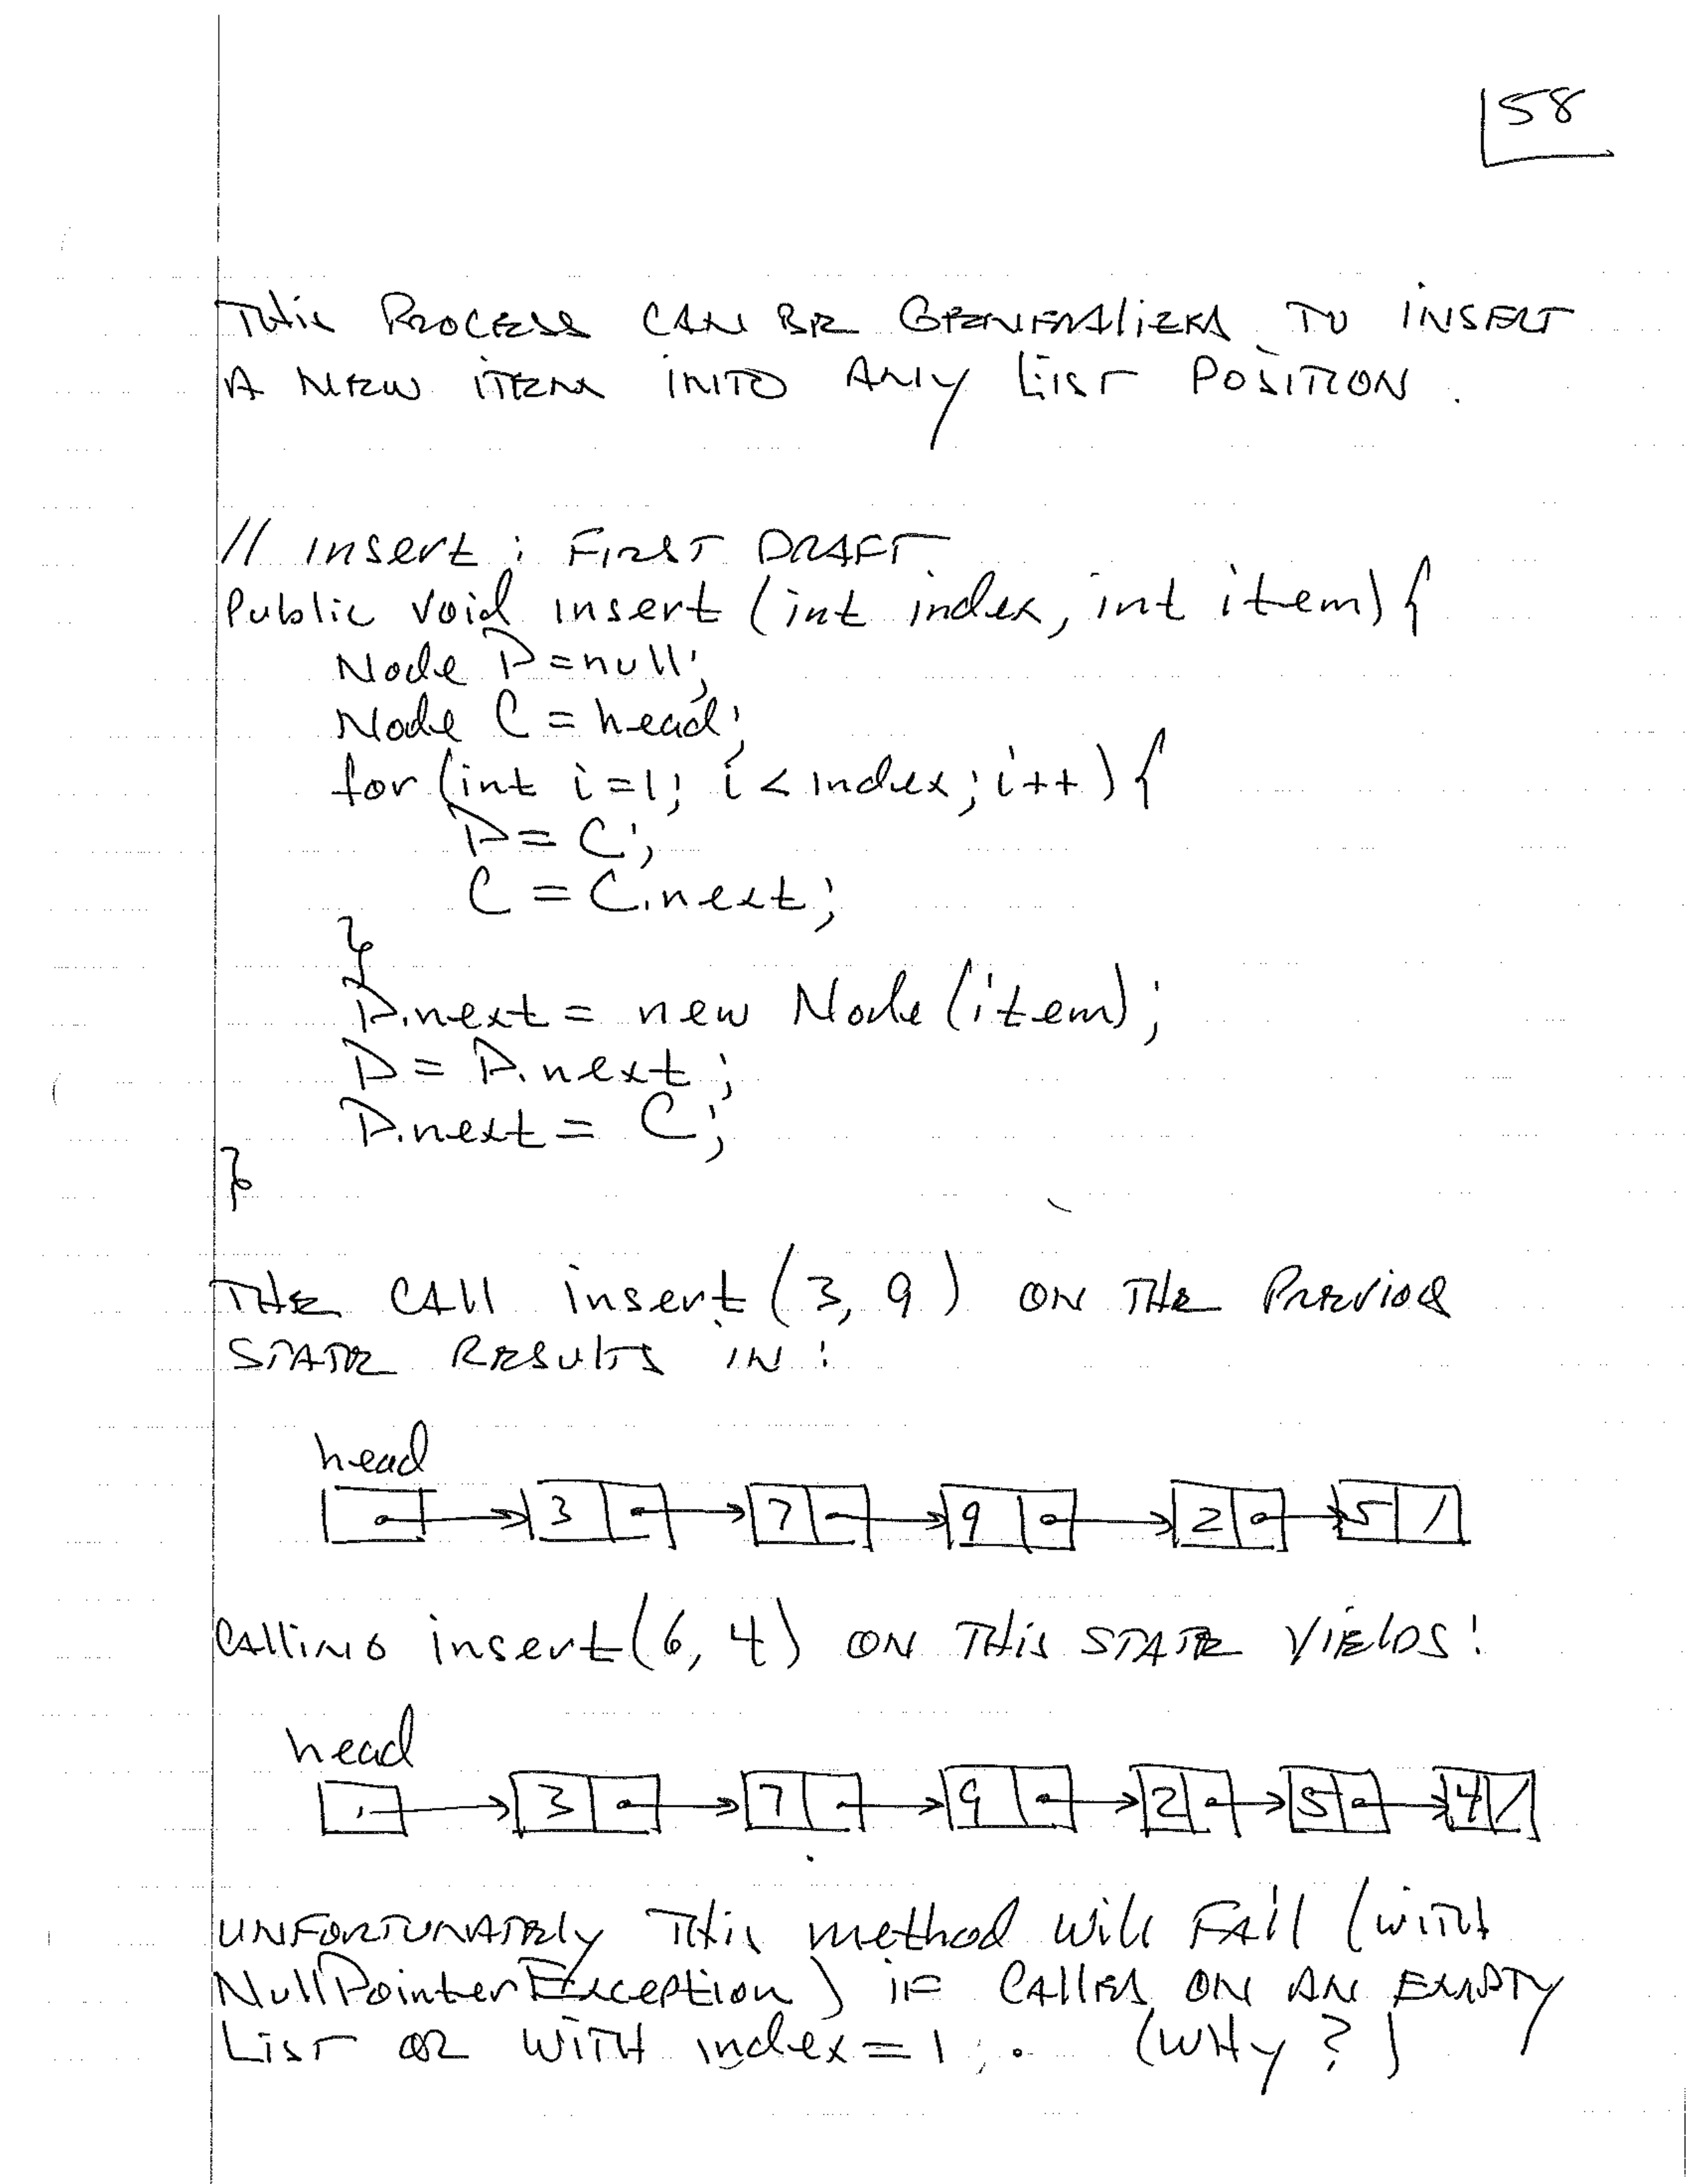 58
THIS PROCESS CAN BE GENERALIZED TO INSERT
A NEW ITEM INTO ANY LIST POSITION.
// insert : FIRST DRAFT
Public void insert (int index, int item) {
Node P = null;
Node C = head;
for (int i = 1; i < index; i++) {
P = C;
C = C.next;
}
P.next = new Node (item);
P = P.next;
P.next = C;
}
THE CALL insert (3, 9) ON THE PREVIOUS
STATE RESULTS IN :
head
3 7 9 2 5 /
CALLING insert (6, 4) ON THIS STATE YIELDS:
head
3 7 9 2 5 4 /
UNFORTUNATELY THIS method will FAIL (WITH
NullPointerException) IF CALLED ON AN EMPTY
LIST OR WITH index = 1. (WHY?)